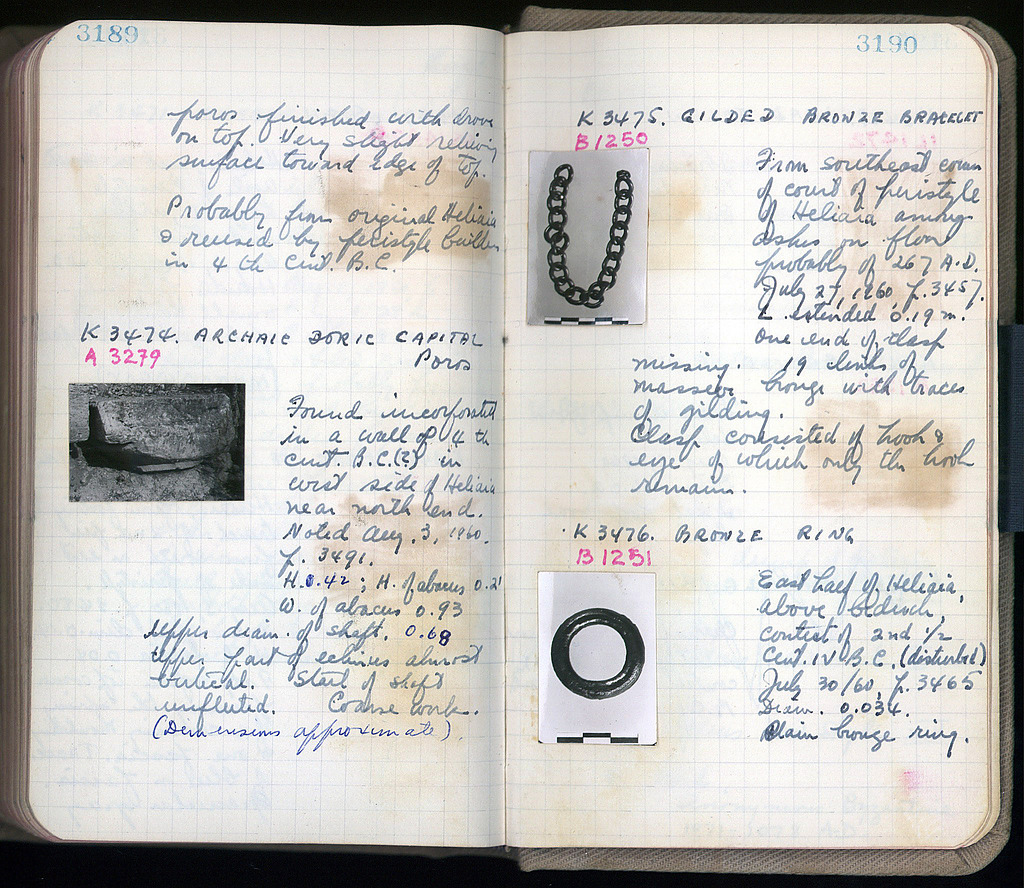 3189
poros finished with drove
on top. Very slight relieving
surface toward edge of top.
Probably from original Heliaia
& reused by peristyle builders
in 4th cent. B.C.
K 3474. ARCHAIC DORIC CAPITAL
A 3279
Poros
Found incorporated
in a wall of 4th
cent. B.C.(?) in
west side of Heliaia
near north end.
Noted Aug. 3, 1960.
p. 3491.
H. 0.42; H. of abacus 0.21
W. of abacus 0.93
Upper diam. of shaft. 0.68
Upper part of echinus almost
vertical. Start of shaft
unfluted. Coarse work.
(Dimensions approximate)
3190
K 3475. GILDED BRONZE BRACELET
B 1250
From southeast corner
of court of peristyle
of Heliaia among
ashes on floor
probably of 267 A.D.
July 27, 1960, p. 3457.
L. extended 0.19 m.
One end of clasp
missing. 19 links of
massive bronze with traces
of gilding.
Clasp consisted of hook &
eye of which only the hook
remains.
K 3476. BRONZE RING
B 1251
East half of Heliaia,
above bedrock,
context of 2nd 1/2
Cent. IV B.C. (disturbed)
July 30/60, p. 3465
Diam. 0.034.
Plain bronze ring.